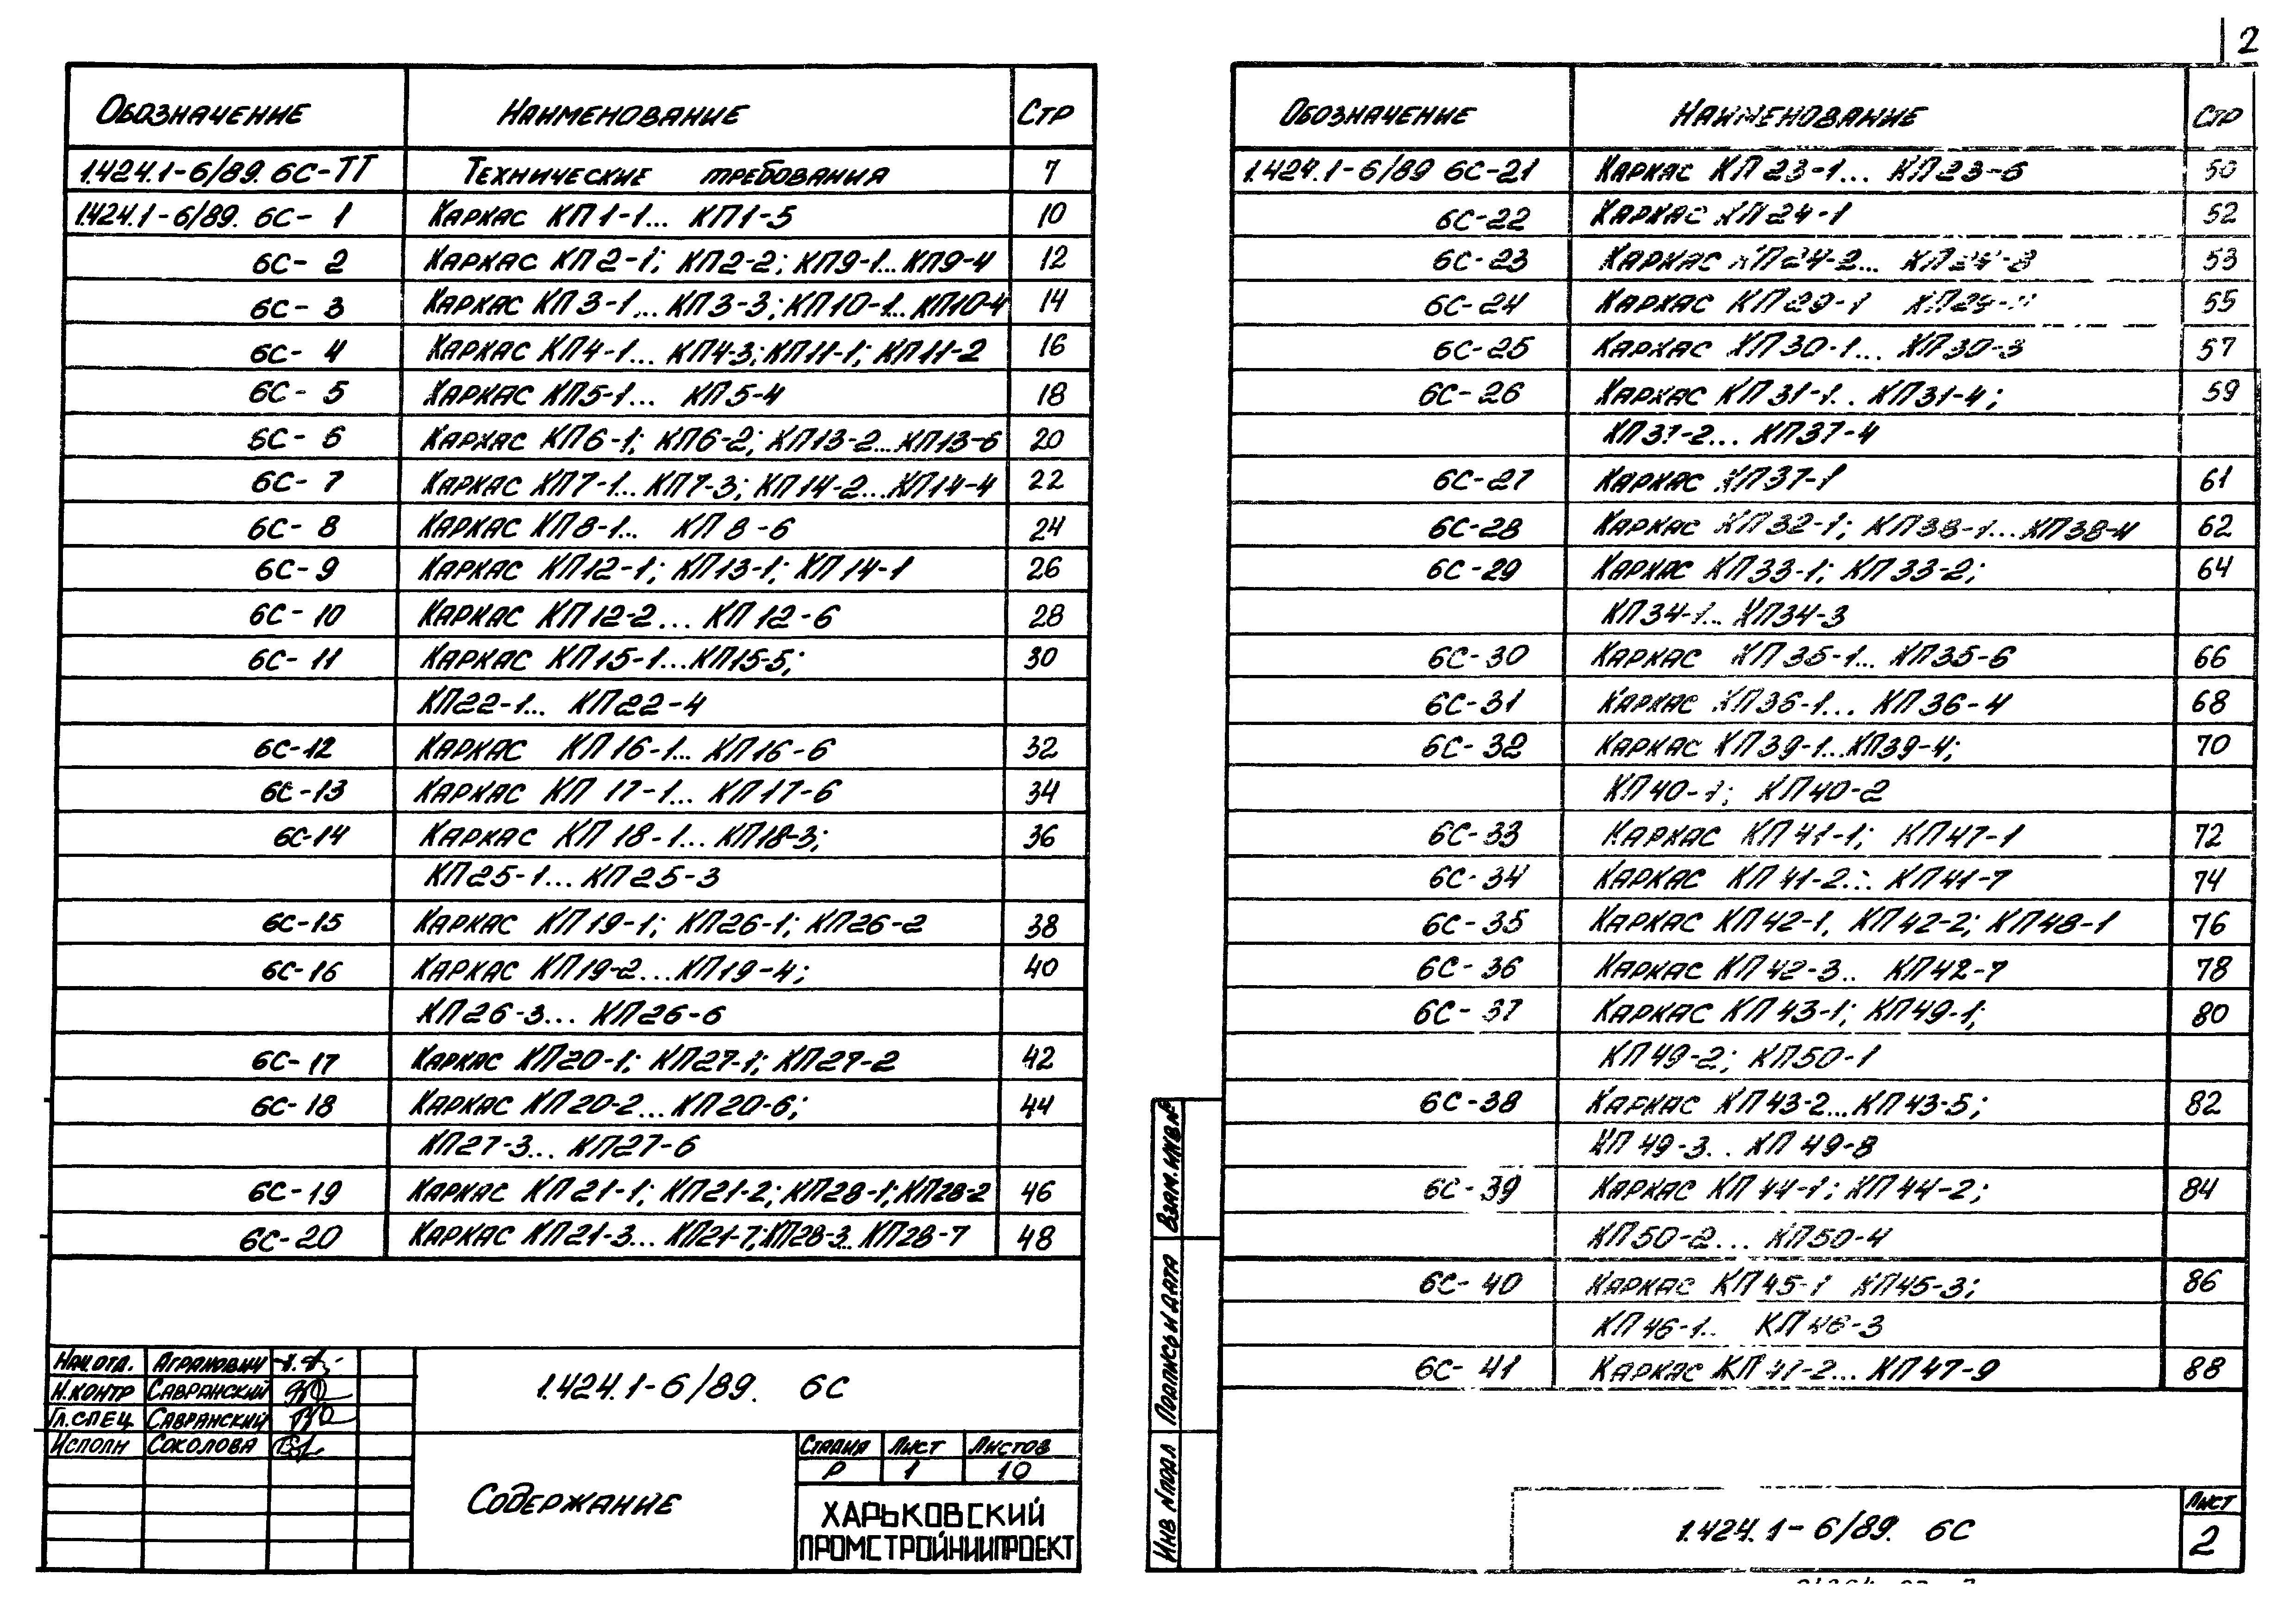 2
Обозначение Наименование Стр
1.424.1-6/89. 6С-ТТ Технические требования 7
1.424.1-6/89. 6С- 1 Каркас КП1-1... КП1-5 10
6С- 2 Каркас КП2-1; КП2-2; КП9-1...КП9-4 12
6С- 3 Каркас КП3-1... КП3-3; КП10-1...КП10-4 14
6С- 4 Каркас КП4-1... КП4-3; КП11-1; КП11-2 16
6С- 5 Каркас КП5-1... КП5-4 18
6С- 6 Каркас КП6-1; КП6-2; КП13-2...КП13-6 20
6С- 7 Каркас КП7-1... КП7-3; КП14-2...КП14-4 22
6С- 8 Каркас КП8-1... КП8-6 24
6С-9 Каркас КП12-1; КП13-1; КП14-1 26
6С- 10 Каркас КП12-2... КП12-6 28
6С- 11 Каркас КП15-1...КП15-5; 30
КП22-1... КП22-4
6С-12 Каркас КП16-1... КП16-6 32
6С-13 Каркас КП17-1... КП17-6 34
6С-14 Каркас КП18-1... КП18-3; 36
КП25-1...КП25-3
6С-15 Каркас КП19-1; КП26-1; КП26-2 38
6С-16 Каркас КП19-2...КП19-4; 40
КП26-3... КП26-6
6С-17 Каркас КП20-1; КП27-1; КП27-2 42
6С-18 Каркас КП20-2...КП20-6; 44
КП27-3... КП27-6
6С-19 Каркас КП21-1; КП21-2; КП28-1; КП28-2 46
6С-20 Каркас КП21-3... КП21-7; КП28-3...КП28-7 48
Нач.отд. Аграмович
Н.контр Савранский
Гл.спец Савранский
Исполн Соколова
1.424.1-6/89. 6С
Содержание
Стадия Лист Листов
Р 1 10
ХАРЬКОВСКИЙ
ПРОМСТРОЙНИИПРОЕКТ
Обозначение Наименование Стр
1.424.1-6/89 6С-21 Каркас КП23-1... КП23-6 50
6С-22 Каркас КП24-1 52
6С-23 Каркас КП24-2... КП24-8 53
6С-24 Каркас КП29-1 55
6С-25 Каркас КП30-1... КП30-3 57
6С-26 Каркас КП31-1.. КП31-4; 59
КП37-2... КП37-4
6С-27 Каркас КП37-1 61
6С-28 Каркас КП32-1; КП38-1...КП38-4 62
6С-29 Каркас КП33-1; КП33-2; 64
КП34-1... КП34-3
6С-30 Каркас КП35-1... КП35-6 66
6С-31 Каркас КП36-1... КП36-4 68
6С-32 Каркас КП39-1...КП39-4; 70
КП40-1; КП40-2
6С-33 Каркас КП41-1; КП47-1 72
6С-34 Каркас КП41-2... КП41-7 74
6С-35 Каркас КП42-1, КП42-2; КП48-1 76
6С-36 Каркас КП42-3.. КП42-7 78
6С-37 Каркас КП43-1; КП49-1; 80
КП49-2; КП50-1
6С-38 Каркас КП43-2...КП43-5; 82
КП49-3.. КП49-8
6С-39 Каркас КП44-1; КП44-2; 84
КП50-2... КП50-4
6С-40 Каркас КП45-1 КП45-3; 86
КП46-1.. КП46-3
6С-41 Каркас КП47-2... КП47-9 88
Взам.инв.№
Подпись и дата
Инв №подл
1.424.1-6/89. 6С
Лист
2